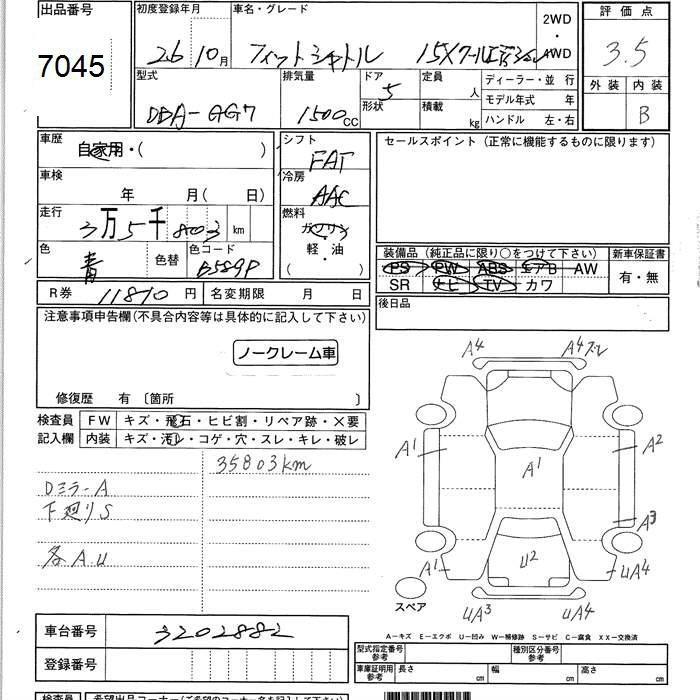 出品番号 初度登録年月 車名・グレード 2WD・4WD 評価点
7045 26 10月 フィットシャトル 15X 3.5
型式 排気量 ドア 5 定員 人 ディーラー・並行 外装 内装
DBA-GG7 1500cc 形状 積載 kg モデル年式 年 B
ハンドル 左・右
車歴 自家用・( )
シフト FAT
セールスポイント(正常に機能するものに限ります)
車検 年 月( 日)
冷房 AAC
走行 3万5千803km
燃料 ガソリン
軽・油
( )
色 青 色替 色コード B589P
装備品(純正品に限り○をつけて下さい) 新車保証書
PS PW ABS エアB AW 有・無
SR ナビ TV カワ
R券 11810円 名変期限 月 日
後日品
注意事項申告欄(不具合内容等は具体的に記入して下さい)
ノークレーム車
修復歴 有 〔箇所 〕
検査員 FW キズ・飛石・ヒビ割・リペア跡・×要
記入欄 内装 キズ・汚レ・コゲ・穴・スレ・キレ・破レ
35803km
Dミラ-A
下廻りS
各A.U
A4 A4ズレ
A1 A1 A2
A3
A1 U2 UA4
スペア UA3 UA4
A-キズ E-エクボ U-凹み W-補修跡 S-サビ C-腐食 XX-交換済
車台番号 3202882
登録番号
型式指定番号 参考 種別区分番号 参考
車庫証明用 参考 長さ cm 幅 cm 高さ cm
検査員 希望出品コーナー(ご希望のコーナー名を記入して下さい)